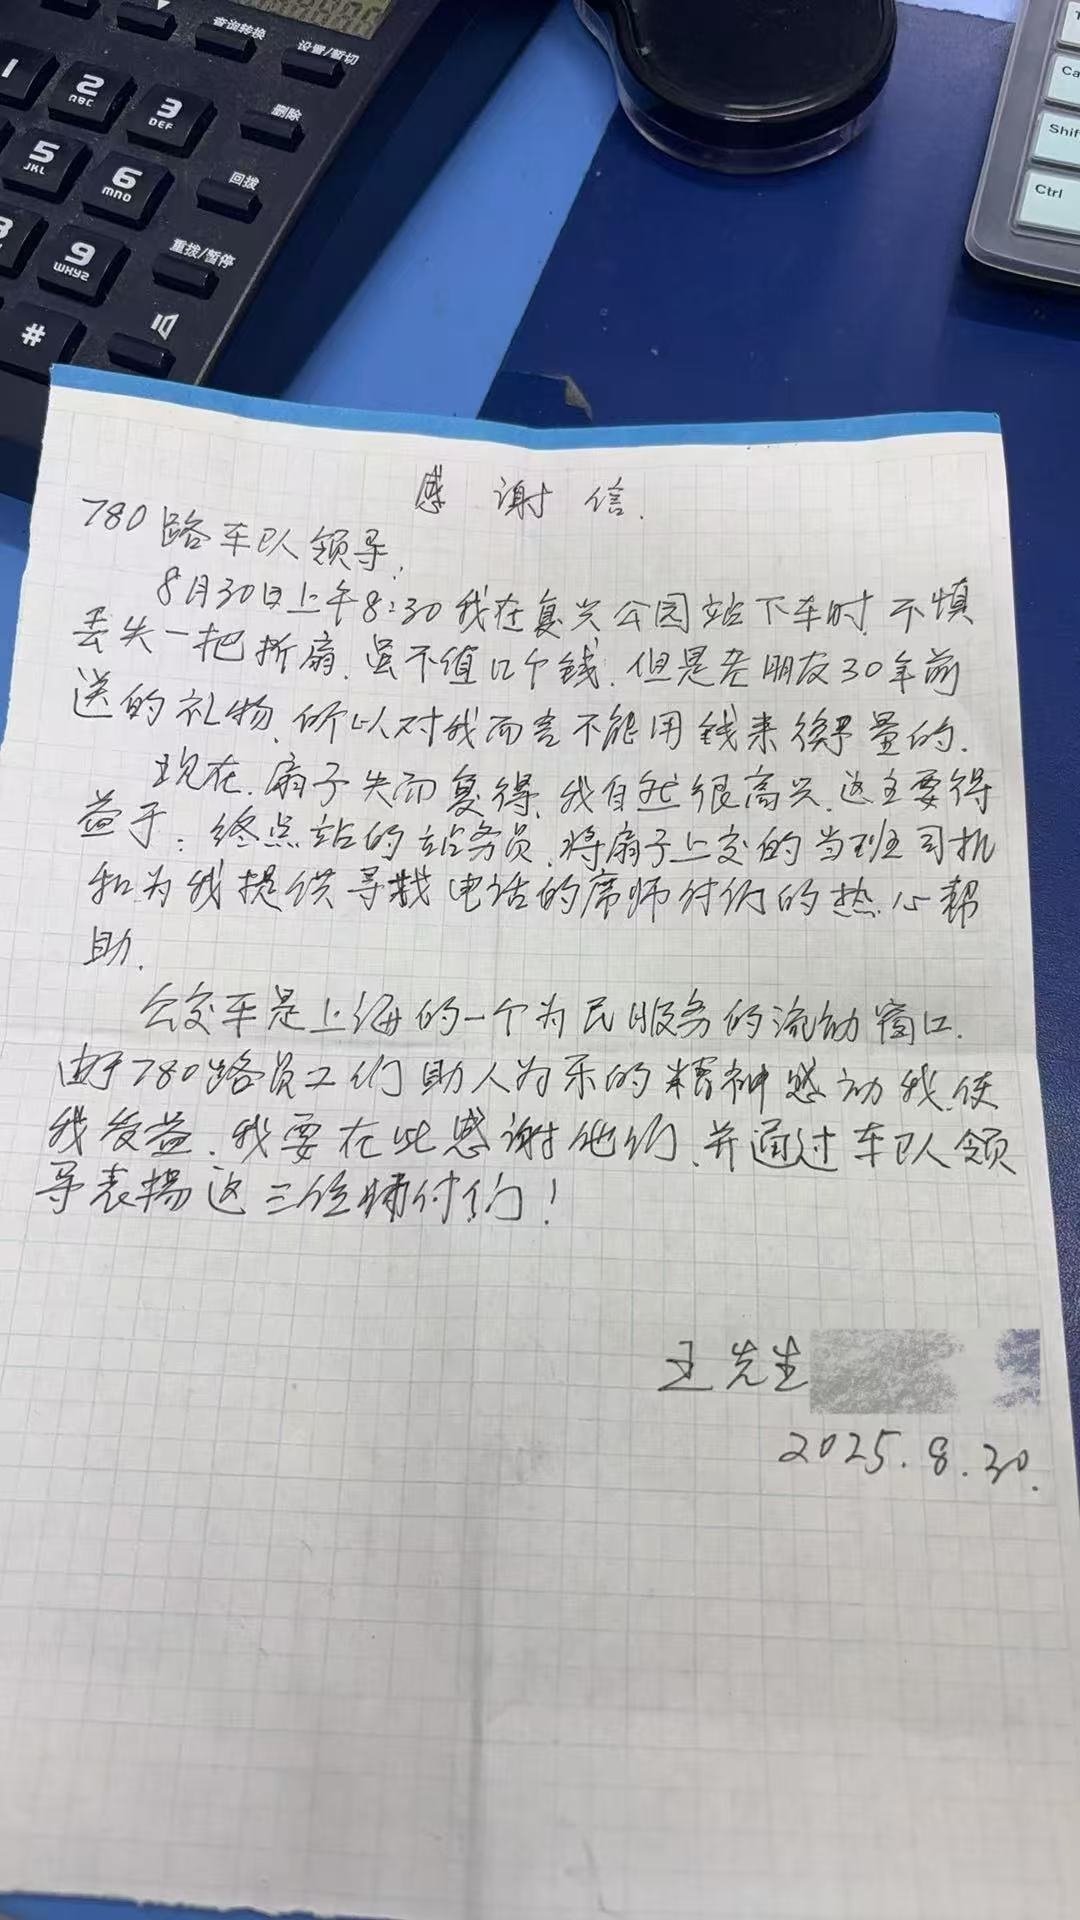 查询转换
设置/暂切
1
2
ABC
3
DEF
删除
5
JKL
6
mno
回拨
9
WXYZ
重拨/暂停
#
Shift
Ctrl
感谢信.
780路车队领导.
8月30日上午8:30我在复兴公园站下车时,不慎
丢失一把折扇.虽不值几个钱.但是老朋友30年前
送的礼物.所以对我而言不能用钱来衡量的.
现在.扇子失而复得.我自然很高兴.这主要得
益于:终点站的站务员.将扇子上交的当班司机
和为我提供寻找电话的席师付们的热心帮
助.
公交车是上海的一个为民服务的流动窗口.
由于780路员工们助人为乐的精神感动我.使
我受益.我要在此感谢他们.并通过车队领
导表揚这三位师付们!
王先生
2025.8.30.